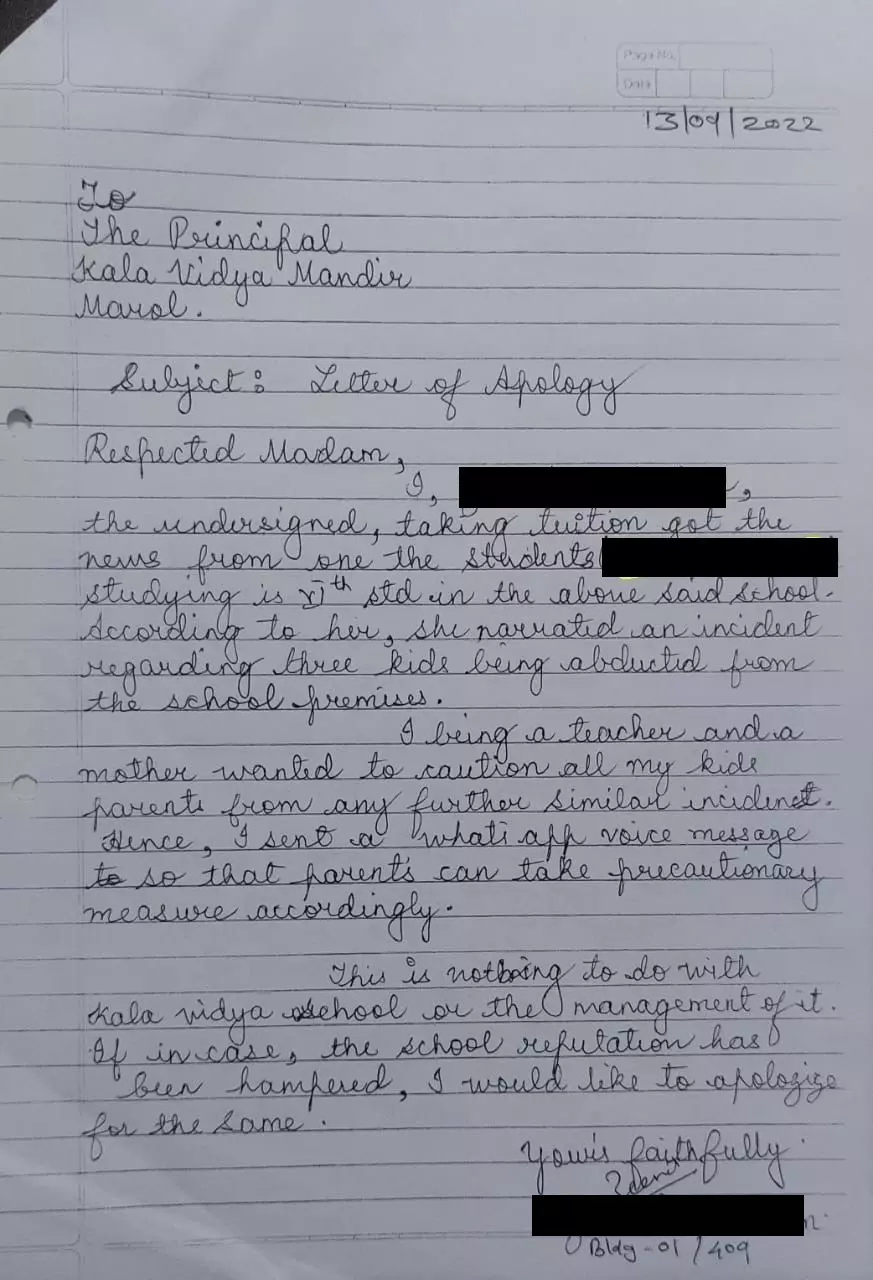 Page No.
Date
13/09/2022
To
The Principal
Kala Vidya Mandir
Marol.
Subject: Letter of Apology
Respected Madam,
I, ,
the undersigned, taking tuition got the
news from one the students
studying is XIth std in the above said school.
According to her, she narrated an incident
regarding three kids being abducted from
the school premises.
I being a teacher and a
mother wanted to caution all my kids
parents from any further similar incidenct.
Hence, I sent a whatsapp voice message
to so that parents can take precautionary
measure accordingly.
This is nothing to do with
Kala vidya school or the management of it.
If in case, the school reputation has
been hampered, I would like to apologize
for the same.
Your's faithfully.
Bldg-01/409